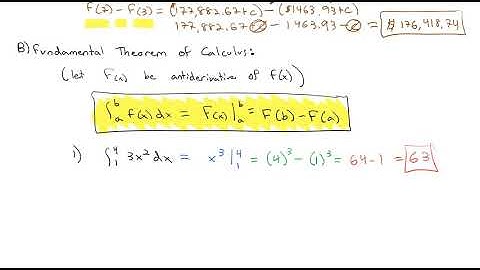 F(7) - F(3) = (177,882.67+C) - ($1463.93+C)
177,882.67+C - 1463.93 - C $176,418.74
B) Fundamental Theorem of Calculus:
(let F(x) be antiderivative of f(x))
∫ₐᵇ f(x) dx = F(x)|ₐᵇ = F(b) - F(a)
1) ∫₁⁴ 3x² dx = x³|₁⁴ = (4)³ - (1)³ = 64 - 1 = 63